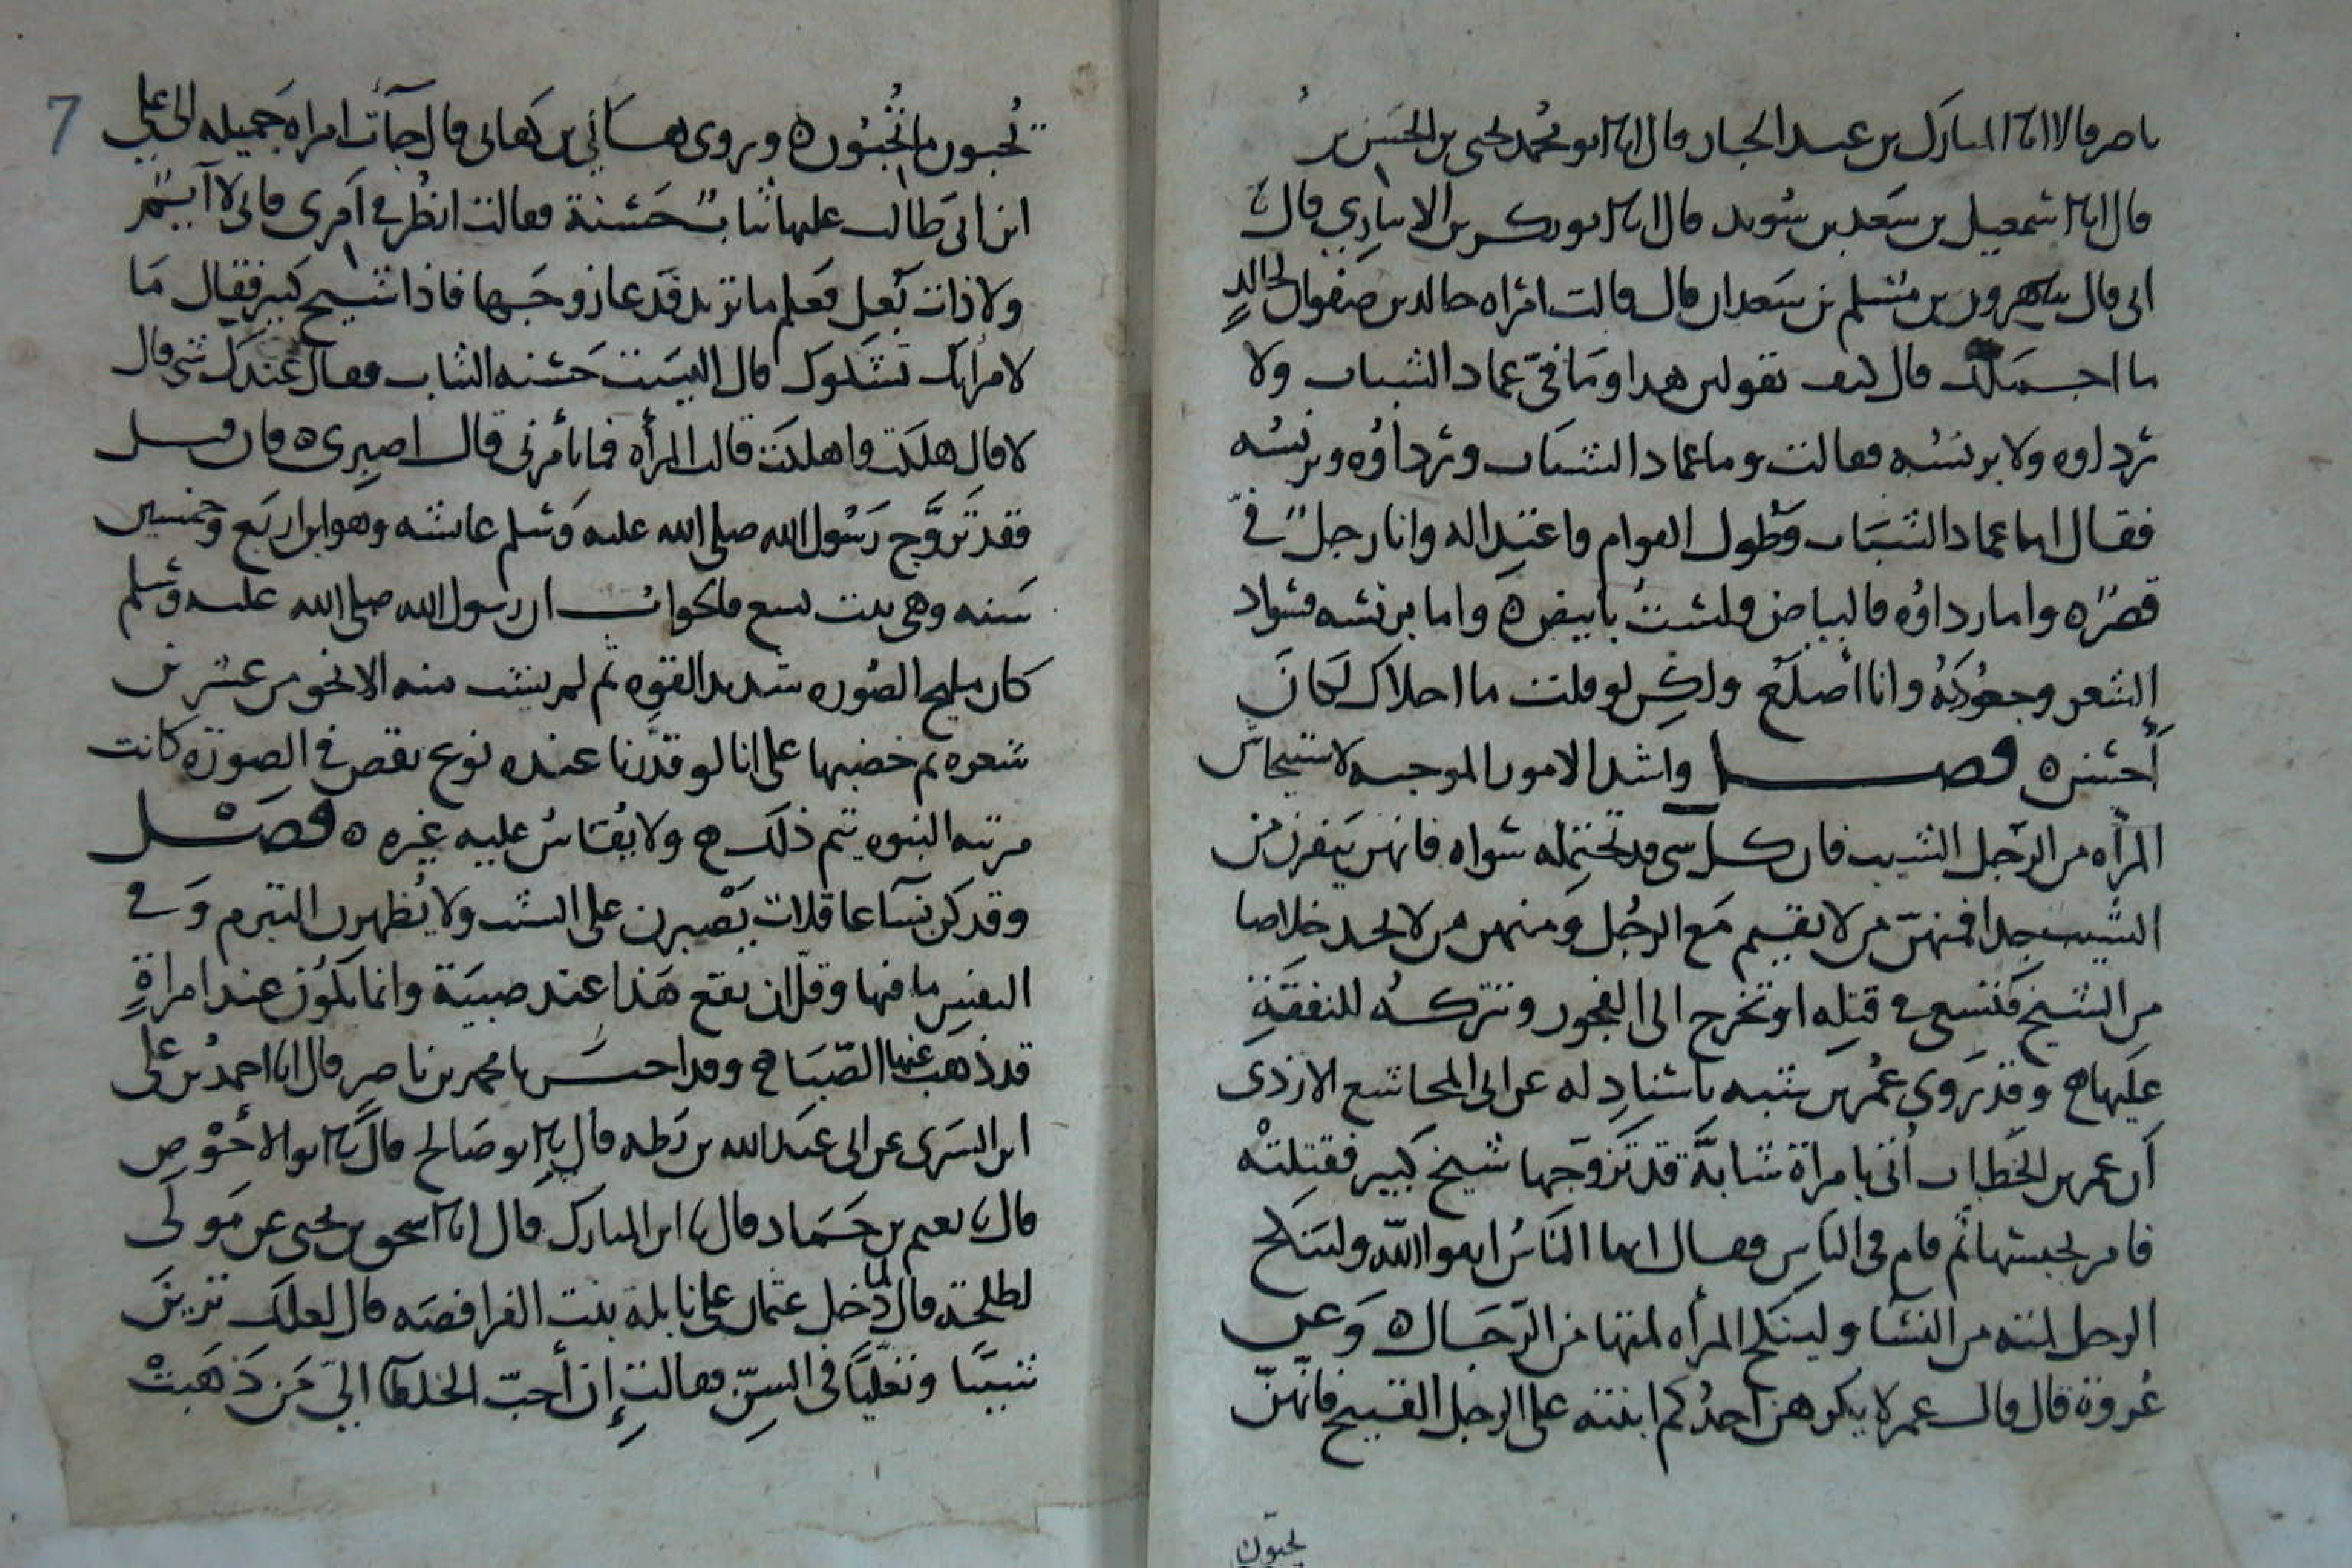 ناصر قالا انا المبارك بن عبد الجبار قال انا ابو محمد يحيى بن الحسن بن
قال انا اسمعيل بن سعد بن سويد قال انا ابو بكر بن الانباري قال نا
ابى قال نا هرون بن مسلم بن سعدان قال قالت امراه خالد بن صفوان لخالدٍ
ما اجملك قال كيف تقولين هذا وما فيّ عماد الشباب ولا
رداوه ولا برنسه فقالت وما عماد الشباب ورداؤه وبرنسه
فقال اما عماد الشباب فطول القوام واعتداله وانا رجلٌ فيّ
قصرٌ ه واما رداؤه فالبياض ولستُ بابيض ه واما برنسه فسواد
الشعر وجعودته وانا أصلع ولكن لو قلت ما احلاك لكان
أحسن ه فصل واشد الامور الموجبه لاستيحاش
المرأه من الرجل الشيب فان كل شى قد تحتمله سواه فانهن ينفرن من
الشيب جدا فمنهنّ من لا تقيم مع الرجل ومنهن من لا تجد خلاصا
من الشيخ فتسعى في قتله او تخرج الى الفجور وتتركه للنفقةِ
عليها ه وقد روى عمر بن شبه باسنادٍ له عن ابى المجاشع الازدى
أن عمر بن الخطاب أتى بامراة شابة قد تزوجها شيخ كبير فقتلته
فامر بحبسها ثم قام في الناس فقال ايها الناسُ اتقوا الله ولينكح
الرجل لمته من النسا ولينكح المرأه لمتها من الرجال ه وعن
عُروة قال قال عمر لا يكرهن احدُكم ابنته على الرجل القبيح فانهنّ
يحبون
7
تُحبون ما تُحبّون ه وروى هاني بن هانى قال جآت امراه جميله الى على
ابن ابى طالب عليها ثيابٌ حسنة فقالت انظُر في امرى فانى لا آيّم
ولا ذات بَعل فعلم ما تريد فدعا زوجها فاذا شيخ كبير فقال ما
لامرأتك تشكوك قال اليست حسنه الثياب فقال عندك شى قال
لا قال هلكت واهلكت قالت المرأه فما تأمرنى قال اصبرى ه فان قيل
فقد تزوّج رسول الله صلى الله عليه وسلم عائشه وهو ابن اربع وخمسين
سنه وهي بنت تسع فالجواب ان رسول الله صلى الله عليه وسلم
كان مليح الصوره شديد القوه ثم لم يشب منه الا نحو من عشرين
شعره ثم خضبها على انا لو قدّرنا عنده نوع نقص في الصورة كانت
مرتبه النبوه يتم ذلك ه ولا يُقاسُ عليه غيره ه فصل
وقد كن نسآ عاقلات يصبرن على الشيب ولا يُظهرن التبرم وفي
النفس ما فيها وقلّ ان يقع هذا عند صبية وانما يكون عند امراةٍ
قد ذهب عنها الصّبا ه وقد اخبرنا محمد بن ناصر قال انا احمد بن على
ابن السرى عن ابى عبد الله بن بطه قال نا ابو صالح قال نا ابو الاحوص
قال نا نعيم بن حماد قال نا ابن المبارك قال انا اسحق بن يحيى عن مولى
لطلحة قال لما دخل عثمان على نايلة بنت الفرافصه قال لعلك ترين
شيبًا وتعليًا في السنّ فقالت إن أحبّ الخلطا اليّ من ذهبتْ